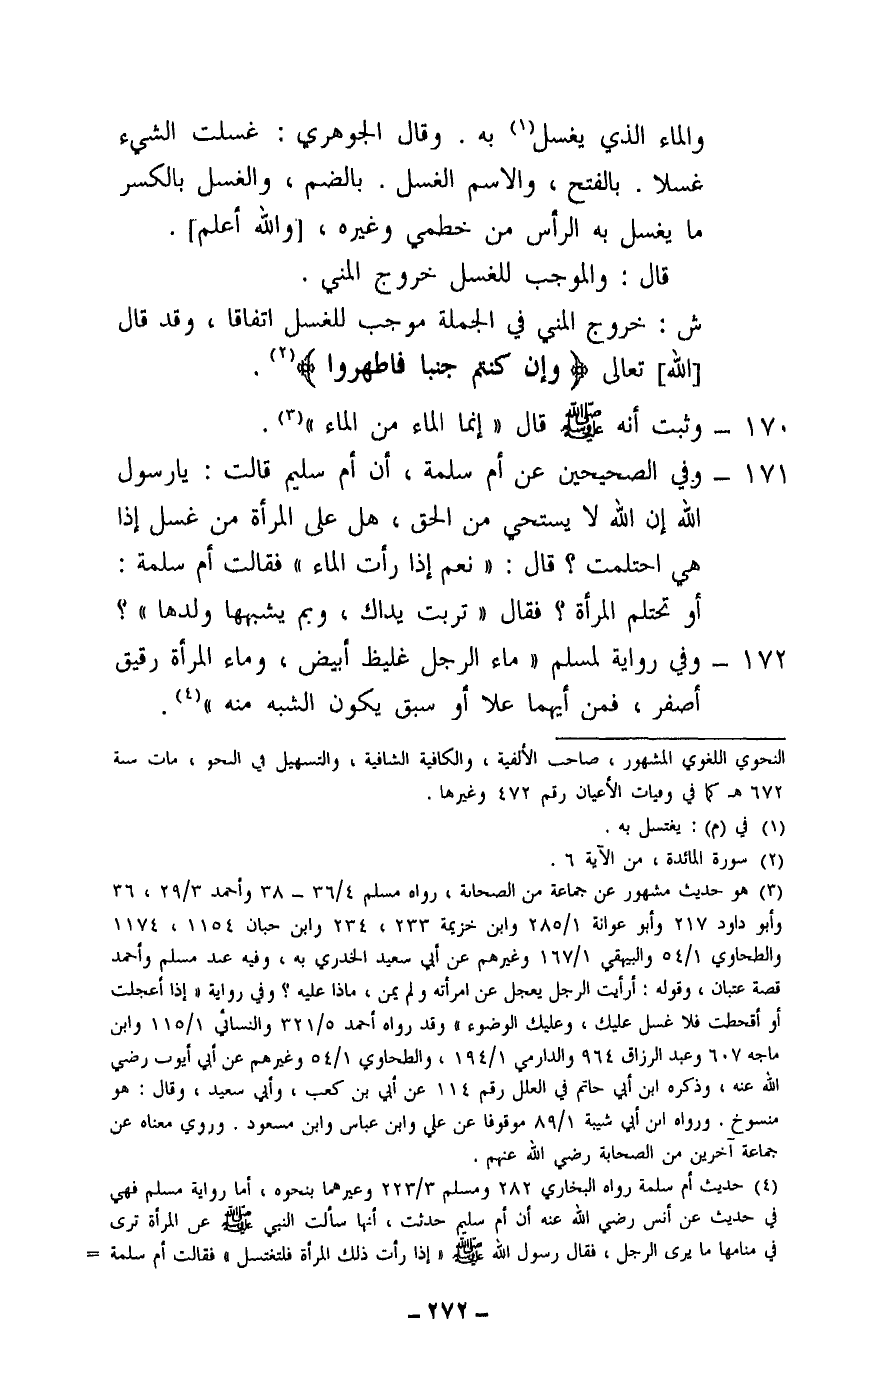 والماء الذي يغسل(١) به . وقال الجوهري : غسلت الشيء
غسلا . بالفتح ، والاسم الغسل . بالضم ، والغسل بالكسر
ما يغسل به الرأس من خطمي وغيره ، [والله أعلم] .
قال : والموجب للغسل خروج المني .
ش : خروج المني في الجملة موجب للغسل اتفاقا ، وقد قال
[الله] تعالى ﴿ وإن كنتم جنبا فاطهروا ﴾(٢) .
١٧٠ – وثبت أنه ﷺ قال « إنما الماء من الماء »(٣) .
١٧١ – وفي الصحيحين عن أم سلمة ، أن أم سليم قالت : يارسول
الله إن الله لا يستحي من الحق ، هل على المرأة من غسل إذا
هي احتلمت ؟ قال : « نعم إذا رأت الماء » فقالت أم سلمة :
أو تحتلم المرأة ؟ فقال « تربت يداك ، وبم يشبهها ولدها » ؟
١٧٢ – وفي رواية لمسلم « ماء الرجل غليظ أبيض ، وماء المرأة رقيق
أصفر ، فمن أيهما علا أو سبق يكون الشبه منه »(٤) .
النحوي اللغوي المشهور ، صاحب الألفية ، والكافية الشافية ، والتسهيل في النحو ، مات سنة
٦٧٢ هـ كما في وفيات الأعيان رقم ٤٧٢ وغيرها .
(١) في (م) : يغتسل به .
(٢) سورة المائدة ، من الآية ٦ .
(٣) هو حديث مشهور عن جماعة من الصحابة ، رواه مسلم ٣٦/٤ – ٣٨ وأحمد ٢٩/٣ ، ٣٦
وأبو داود ٢١٧ وأبو عوانة ٢٨٥/١ وابن خزيمة ٢٣٣ ، ٢٣٤ وابن حبان ١١٥٤ ، ١١٧٤
والطحاوي ٥٤/١ والبيهقي ١٦٧/١ وغيرهم عن أبي سعيد الخدري به ، وفيه عند مسلم وأحمد
قصة عتبان ، وقوله : أرأيت الرجل يعجل عن امرأته ولم يمن ، ماذا عليه ؟ وفي رواية « إذا أعجلت
أو أقحطت فلا غسل عليك ، وعليك الوضوء » وقد رواه أحمد ٣٢١/٥ والنسائي ١١٥/١ وابن
ماجه ٦٠٧ وعبد الرزاق ٩٦٤ والدارمي ١٩٤/١ ، والطحاوي ٥٤/١ وغيرهم عن أبي أيوب رضي
الله عنه ، وذكره ابن أبي حاتم في العلل رقم ١١٤ عن أبي بن كعب ، وأبي سعيد ، وقال : هو
منسوخ . ورواه ابن أبي شيبة ٨٩/١ موقوفا عن علي وابن عباس وابن مسعود . وروي معناه عن
جماعة آخرين من الصحابة رضي الله عنهم .
(٤) حديث أم سلمة رواه البخاري ٢٨٢ ومسلم ٢٢٣/٣ وغيرهما بنحوه ، أما رواية مسلم فهي
في حديث عن أنس رضي الله عنه أن أم سليم حدثت ، أنها سألت النبي ﷺ عن المرأة ترى
في منامها ما يرى الرجل ، فقال رسول الله ﷺ « إذا رأت ذلك المرأة فلتغتسل » فقالت أم سلمة =
– ٢٧٢ –